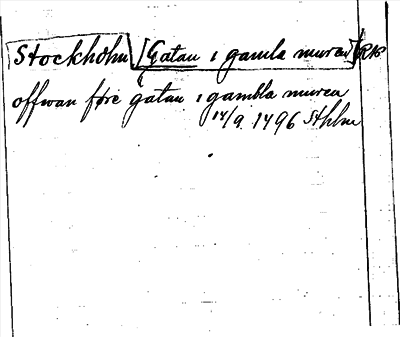 Stockholm [Gatan i gamla muren] RAp
offwan føre gatan i gambla muren
14/9 1496 Sthlm